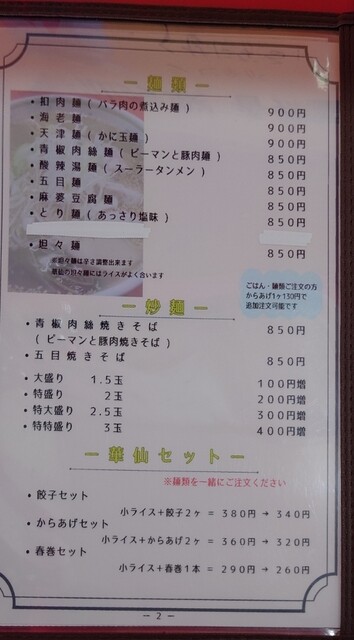 ー 麺 類 ー
・ 扣 肉 麺 ( バラ肉の煮込み麺 ) 900円
・ 海 老 麺 900円
・ 天 津 麺 ( かに玉麺 ) 900円
・ 青 椒 肉 絲 麺 ( ピーマンと豚肉麺 ) 850円
・ 酸 辣 湯 麺 ( スーラータンメン ) 850円
・ 五 目 麺 850円
・ 麻 婆 豆 腐 麺 850円
・ と り 麺 ( あっさり塩味 ) 850円
・ 坦 々 麺 850円
※坦々麺は辛さ調整出来ます
ごはん・麺類ご注文の方
からあげ1ヶ130円で
追加注文可能です
ー 炒 麺 ー
・ 青 椒 肉 絲 焼 き そ ば 850円
( ピーマンと豚肉焼きそば )
・ 五 目 焼 き そ ば 850円
・ 大盛り 1.5玉 100円増
・ 特盛り 2玉 200円増
・ 特大盛り 2.5玉 300円増
・ 特特盛り 3玉 400円増
ー 華 仙 セ ッ ト ー
※麺類を一緒にご注文ください
・ 餃子セット
小ライス+餃子2ヶ = 380円 → 340円
・ からあげセット
小ライス+からあげ2ヶ = 360円 → 320円
・ 春巻セット
小ライス+春巻1本 = 290円 → 260円
ー 2 ー